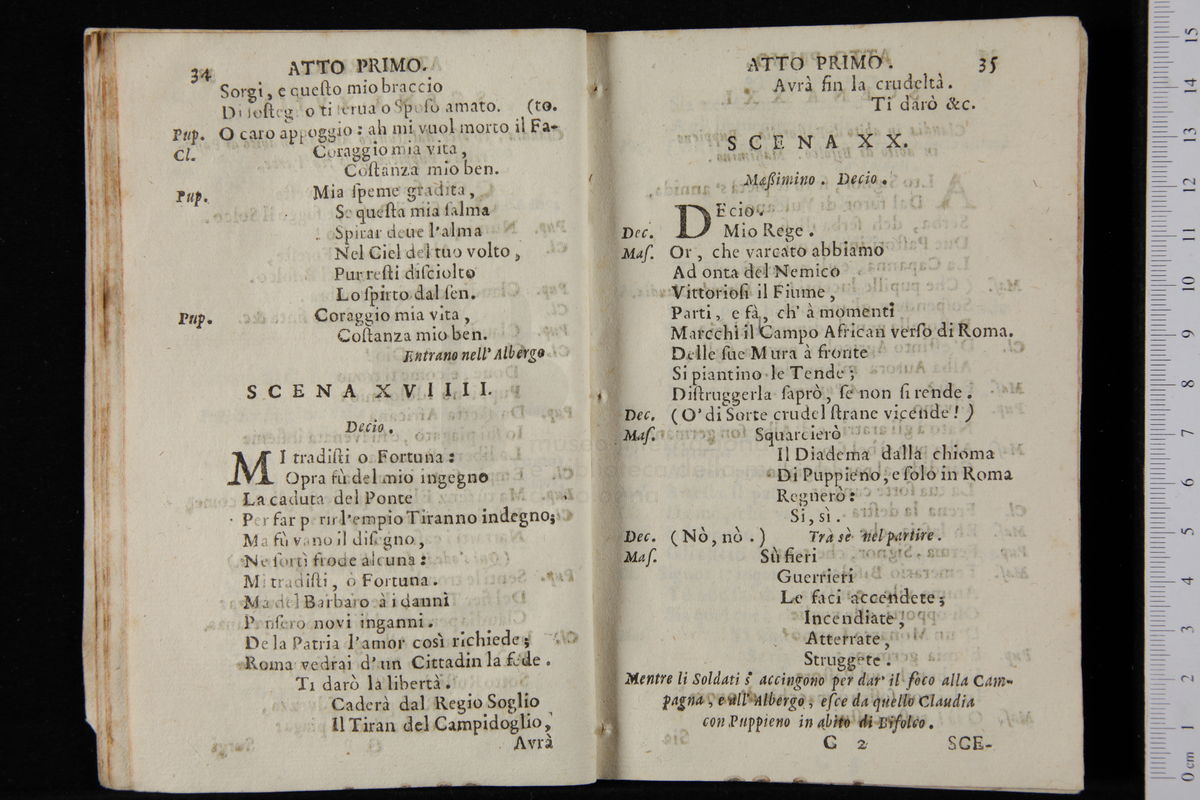 34 ATTO PRIMO.
Sorgi, e queſto mio braccio
Di ſoſteg o ti ſerua o Spoſo amato. (to.
Pup. O caro appoggio : ah mi vuol morto il Fa-
Cl. Coraggio mia vita ,
Coſtanza mio ben.
Pup. Mia ſpeme gradita ,
Se queſta mia ſalma
Spirar deue l'alma
Nel Ciel del tuo volto ,
Pur reſti diſciolto
Lo ſpirto dal ſen.
Pup. Coraggio mia vita ,
Coſtanza mio ben.
Entrano nell' Albergo
SCENA XVIIII.
Decio.
MI tradiſti o Fortuna :
Opra fù del mio ingegno
La caduta del Ponte
Per far p rir l'empio Tiranno indegno;
Ma fù vano il diſegno ,
Ne ſortì frode alcuna :
Mi tradiſti , ò Fortuna .
Ma del Barbaro à i danni
P nſero novi inganni .
De la Patria l'amor così richiede ;
Roma vedrai d'un Cittadin la fede .
Ti darò la libertà .
Caderà dal Regio Soglio
Il Tiran del Campidoglio ,
Avrà
ATTO PRIMO. 35
Avrà fin la crudeltà .
Ti darò &c.
SCENA XX.
Maßimino . Decio .
DEcio .
Dec. Mio Rege .
Maſ. Or , che varcato abbiamo
Ad onta del Nemico
Vittorioſi il Fiume ,
Parti , e fà , ch' à momenti
Marcchi il Campo African verſo di Roma.
Delle ſue Mura à fronte
Si piantino le Tende ;
Diſtruggerla ſaprò , ſe non ſi rende .
Dec. ( O' di Sorte crudel ſtrane vicende ! )
Maſ. Squarcierò
Il Diadema dalla chioma
Di Puppieno , e ſolo in Roma
Regnerò :
Si , sì .
Dec. ( Nò, nò . ) Trà sè nel partire .
Maſ. Sù fieri
Guerrieri
Le faci accendete ;
Incendiate ,
Atterrate ,
Struggete .
Mentre li Soldati s' accingono per dar' il foco alla Cam-
pagna , e all' Albergo , eſce da quello Claudia
con Puppieno in abito di Bifolco .
C 2 SCE-
0 cm 1 2 3 4 5 6 7 8 9 10 11 12 13 14 15